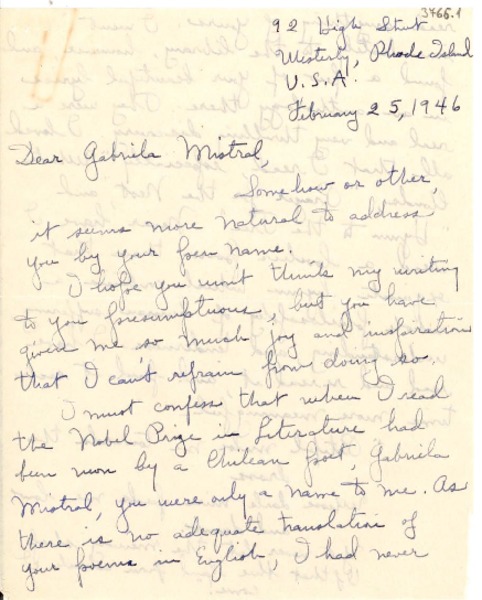 3766.1
92 High Street
Westerly, Rhode Island
U.S.A.
February 25, 1946
Dear Gabriela Mistral,
Somehow or other,
it seems more natural to address
you by your pen name.
I hope you won't think my writing
to you presumptuous, but you have
given me so much joy and inspiration
that I can't refrain from doing so.
I must confess that when I read
the Nobel Prize in Literature had
been won by a Chilean poet, Gabriela
Mistral, you were only a name to me. As
there is no adequate translation of
your poems in English, I had never